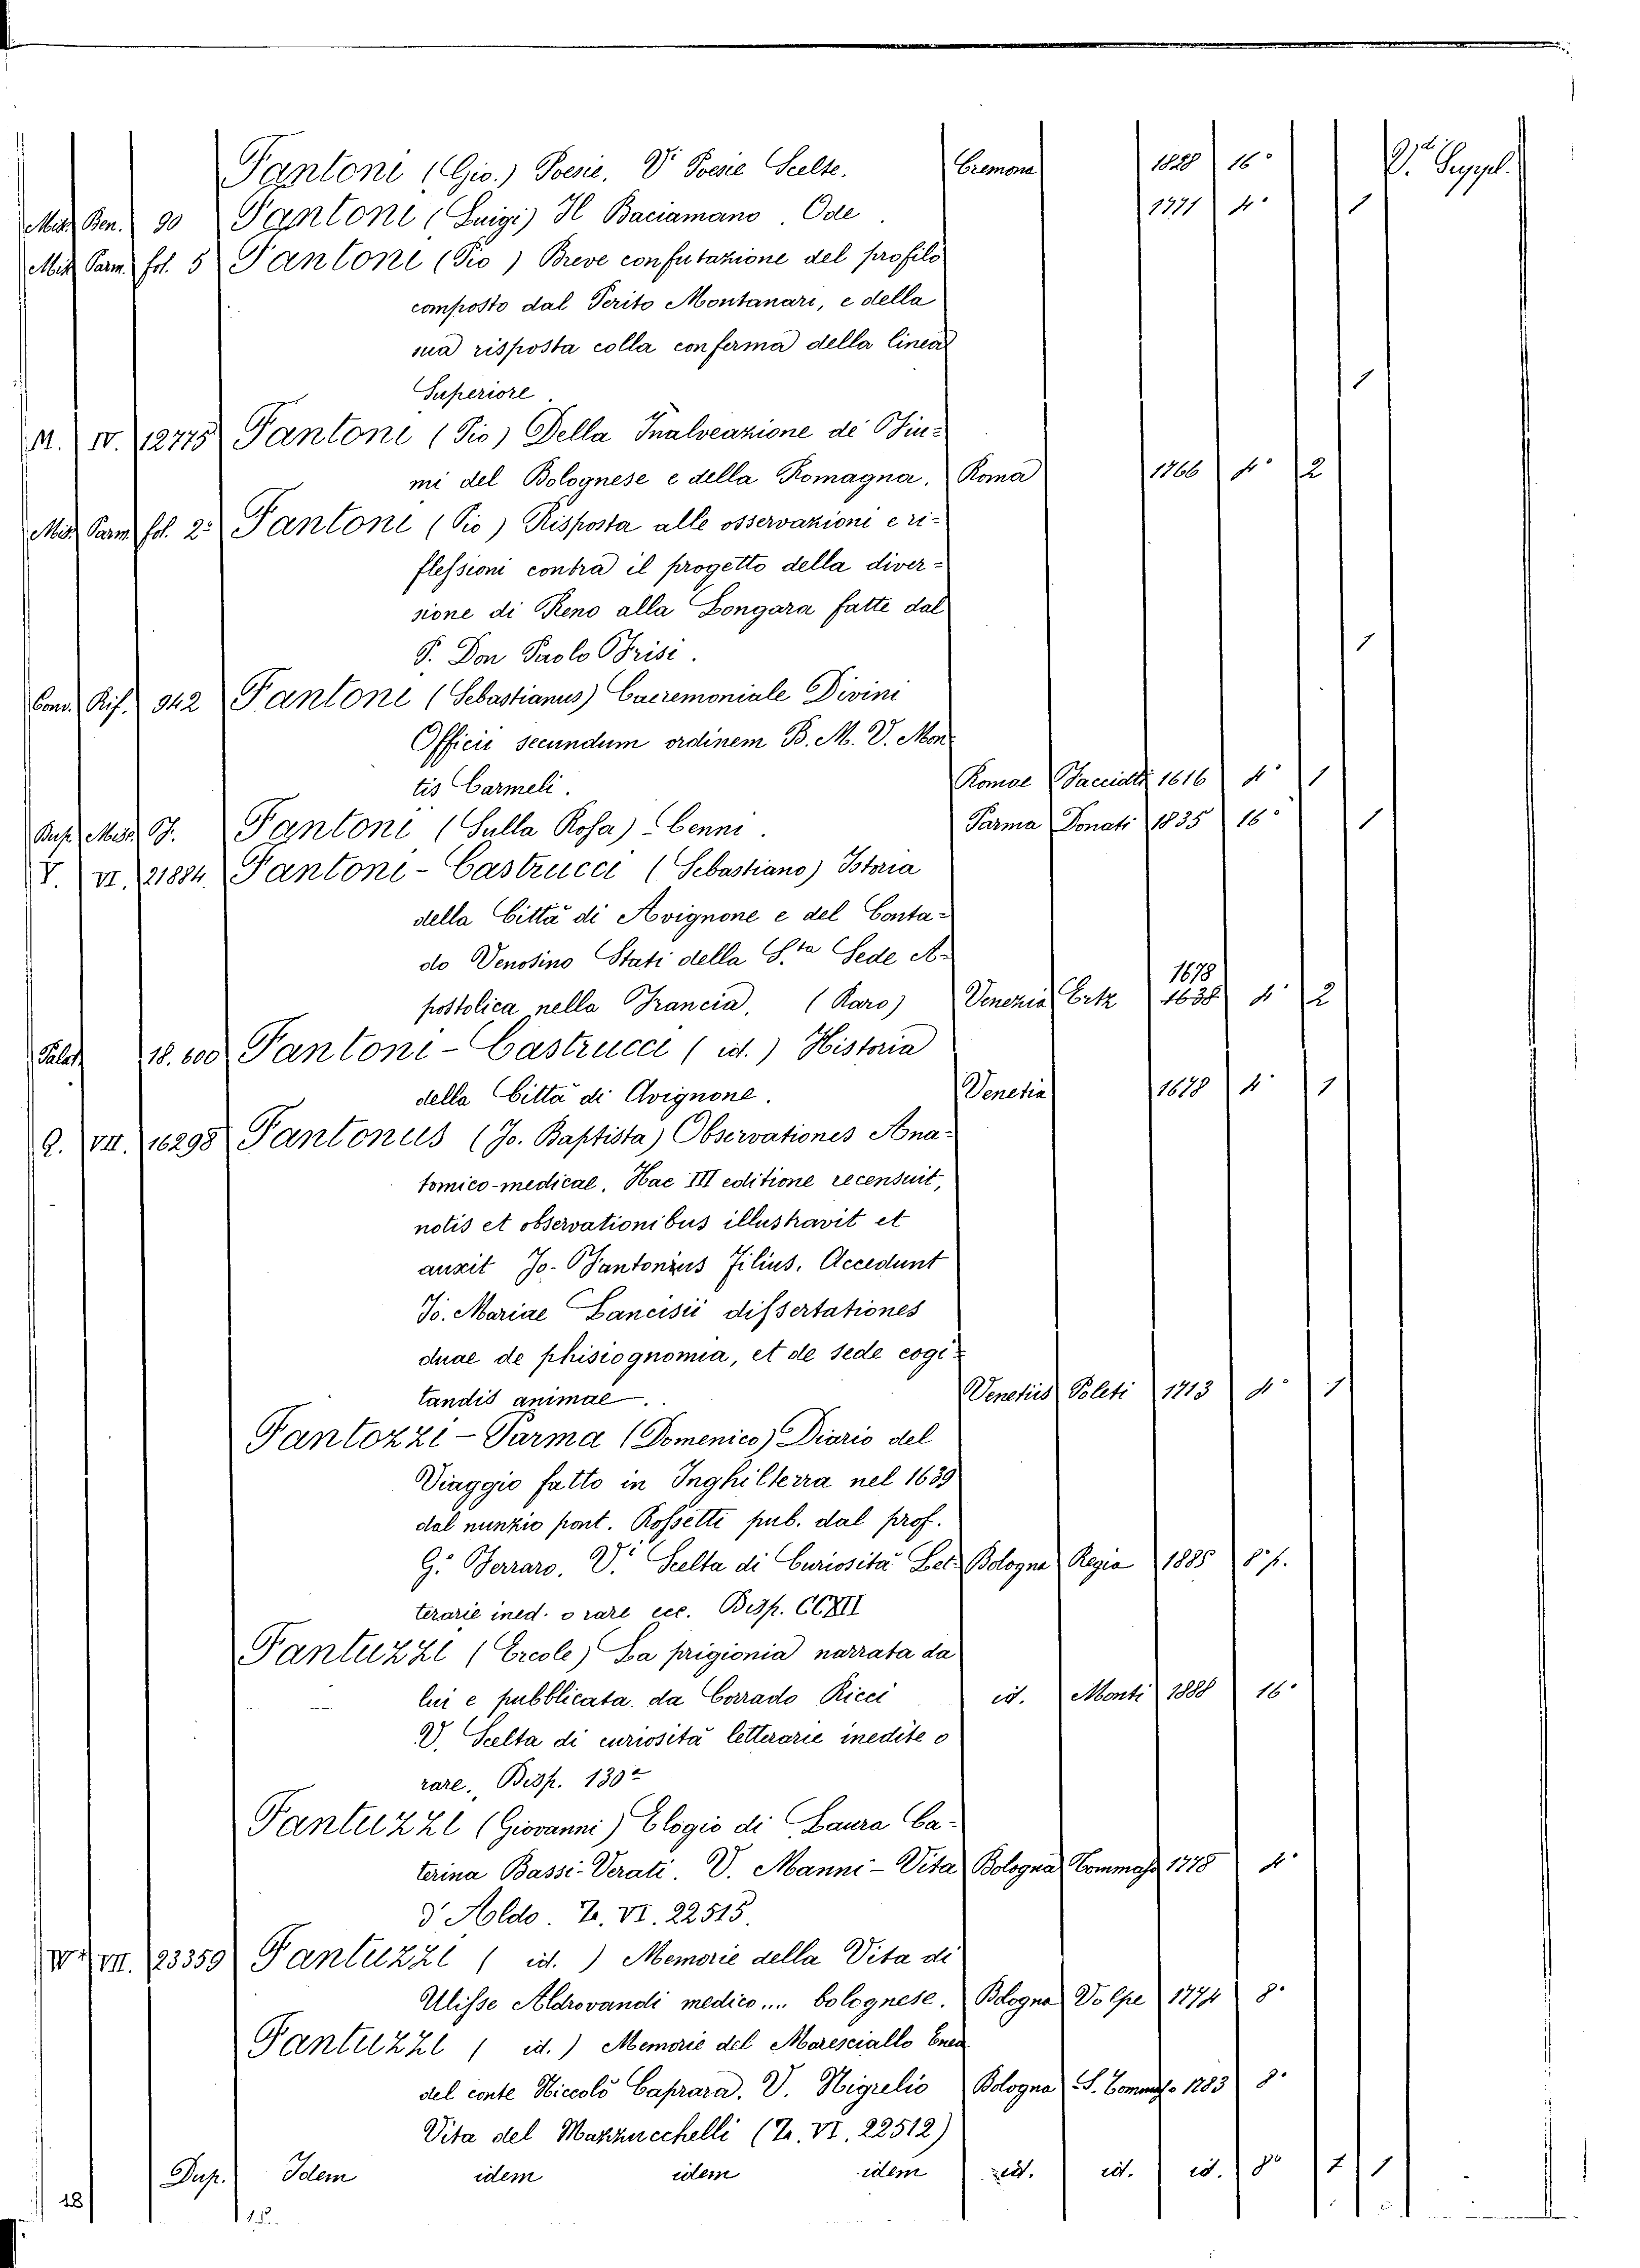 Fantoni (Gio.) Poesie. Vi Poesie Scelte. Cremona 1828 16° Vi Suppl.
Misc. Ben. 90 Fantoni (Luigi) Il Baciamano. Ode. 1771 4° 1
Misc. Parm. fol. 5 Fantoni (Pio) Breve confutazione del profilo
composto dal Perito Montanari, e della
sua risposta colla conferma della linea
Superiore. 1
M. IV. 12775 Fantoni (Pio) Della Inalveazione de' Fiu-
mi del Bolognese e della Romagna. Roma 1766 4° 2
Misc. Parm. fol. 2° Fantoni (Pio) Risposta alle osservazioni e ri-
flessioni contra il progetto della diver-
sione di Reno alla Longara fatte dal
P. Don Paolo Frisi. 1
Cond. Rif. 942 Fantoni (Sebastianus) Caeremoniale Divini
Officii secundum ordinem B. M. V. Mon-
tis Carmeli. Romae Facciotti 1616 4° 1
Busp. Misc. 8°. Fantoni (Sulla Rosa) Cenni. Parma Donati 1835 16° 1
V. VI. 21884. Fantoni-Castrucci (Sebastiano) Istoria
della Città di Avignone e del Conta-
do Venosino Stati della S.ta Sede A-
1678
postolica nella Francia. (Raro) Venezia Ertz 1638 4° 2
Palat. 18.600 Fantoni-Castrucci (id.) Historia
della Città di Avignone. Venetia 1678 4° 1
Q. VII. 16298 Fantonus (Jo. Baptista) Observationes Ana-
tomico-medicae. Hac III editione recensuit,
notis et observationibus illustravit et
auxit Jo. Fantonius Filius. Accedunt
Jo. Mariae Lancisii dissertationes
duae de phisiognomia, et de sede cogi-
tandis animae. Venetiis Poleti 1713 4° 1
Fantozzi-Parma (Domenico) Diario del
Viaggio fatto in Inghilterra nel 1639
dal nunzio pont. Rossetti pub. dal prof.
G. Ferraro. Vi Scelta di Curiosità Let- Bologna Regia 1885 8° p.
terarie ined. o rare ecc. Disp. CCXII
Fantuzzi (Ercole) La prigionia narrata da
lui e pubblicata da Corrado Ricci id. Monti 1888 16°
V. Scelta di curiosità letterarie inedite o
rare. Disp. 130a
Fantuzzi (Giovanni) Elogio di Laura Ca-
terina Bassi-Verati. V. Manni-Vita Bologna Tommaso 1778 4°
d'Aldo. Z. VI. 22515.
W. VII. 23359 Fantuzzi (id.) Memorie della Vita di
Ulisse Aldrovandi medico.... bolognese. Bologna Volpe 1774 8°
Fantuzzi (id.) Memorie del Maresciallo Enea
del conte Niccolò Caprara. V. Nigrelio Bologna S. Tommaso 1783 8°
Vita del Mazzucchelli (Z. VI. 22512)
Dup. Idem idem idem idem id. id. id. 8° 1 1
18